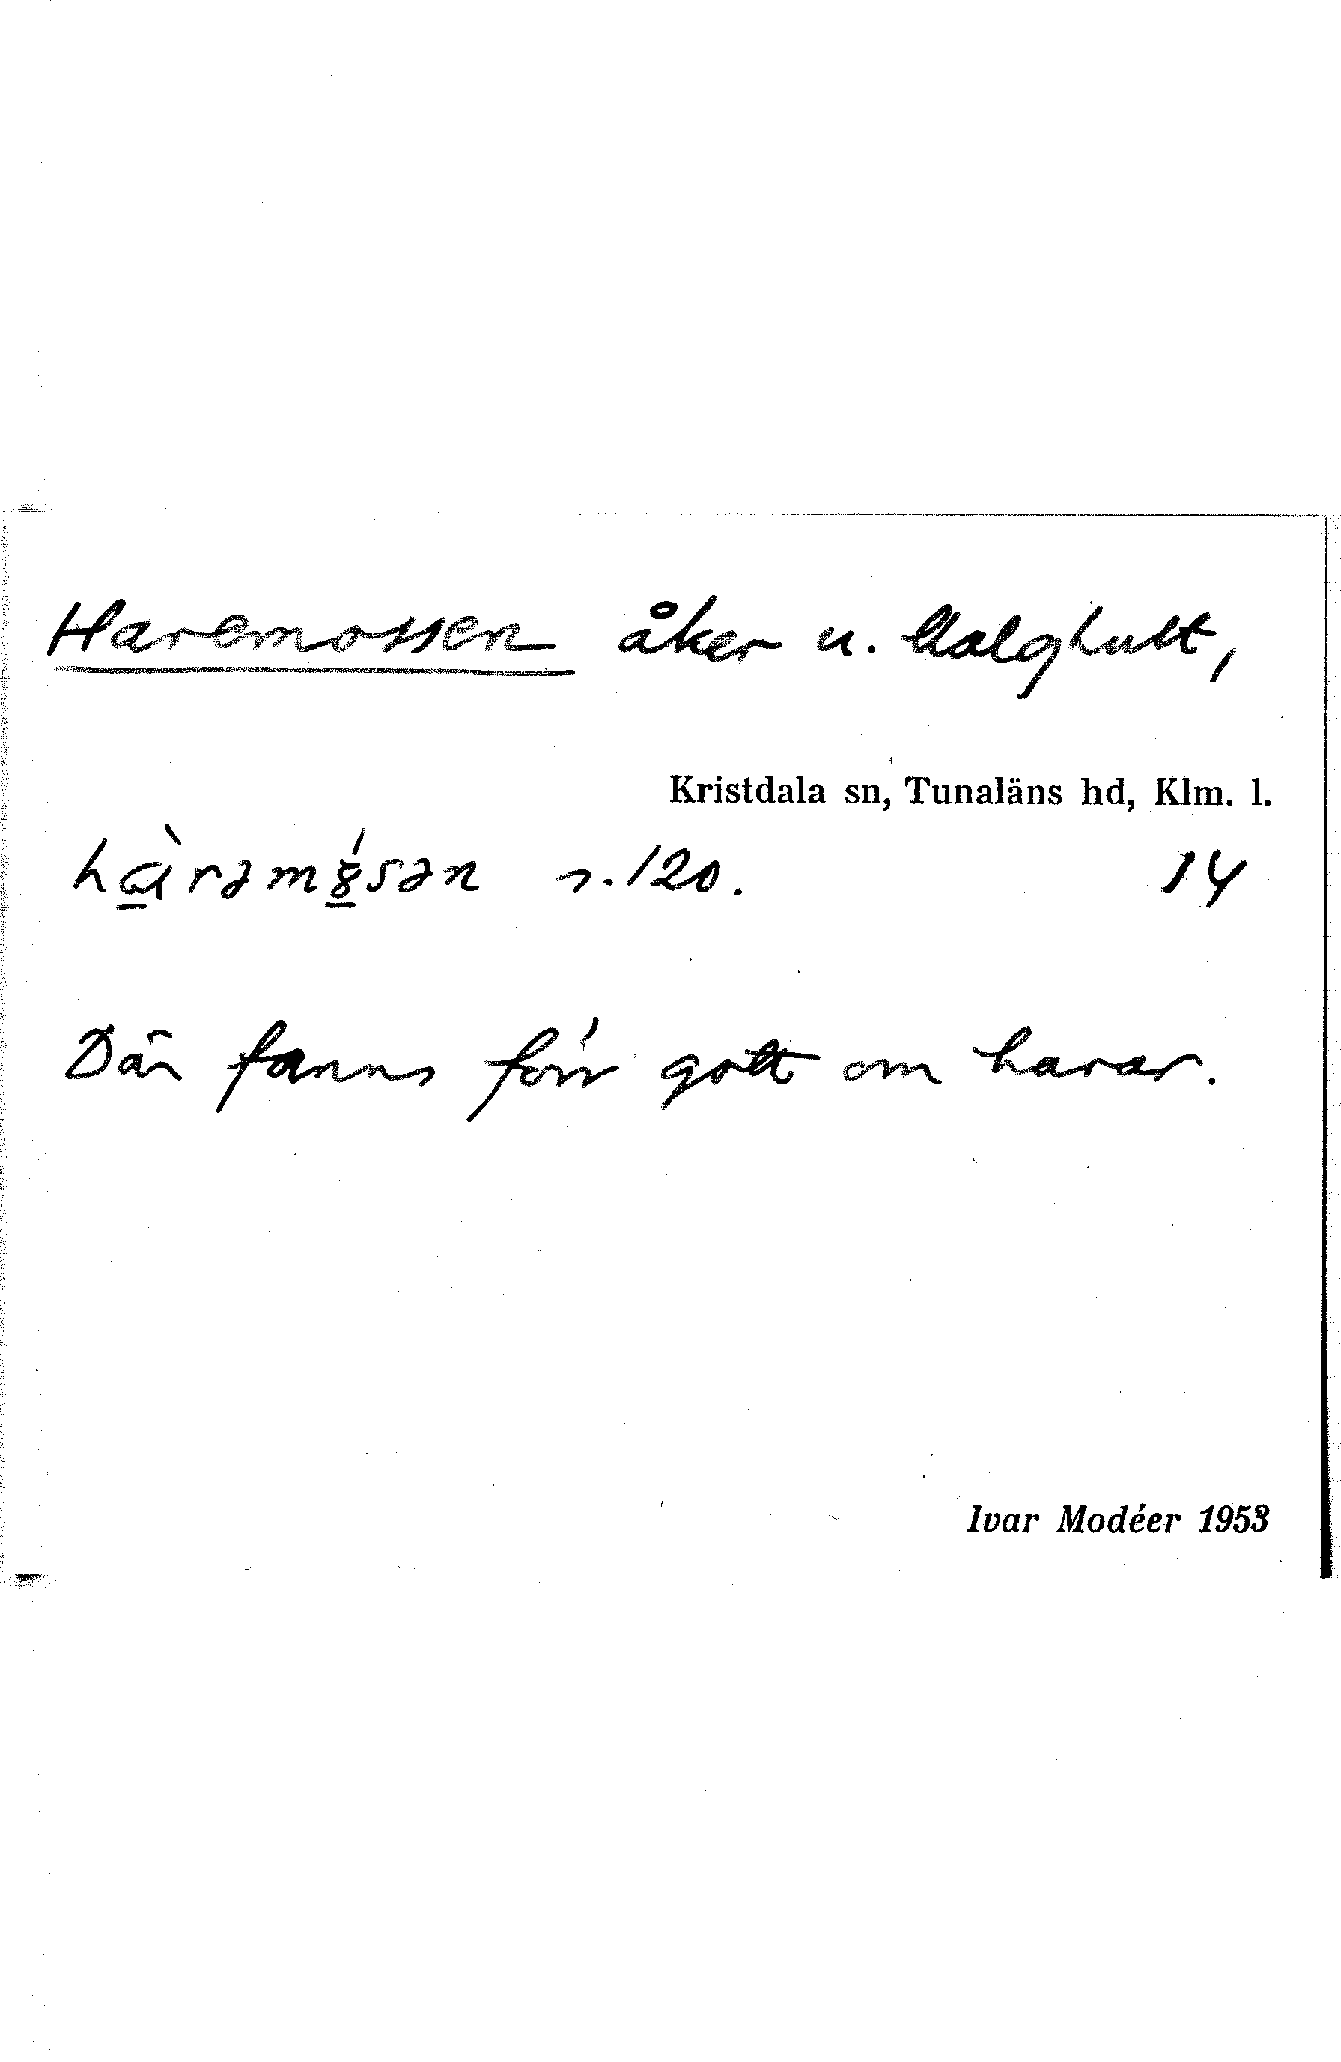 Haremossen åker u. Malghult,
Kristdala sn, Tunaläns hd, Klm. l.
hàrəmósən s. 120. 14
Där fanns förr gott om harar.
Ivar Modéer 1953